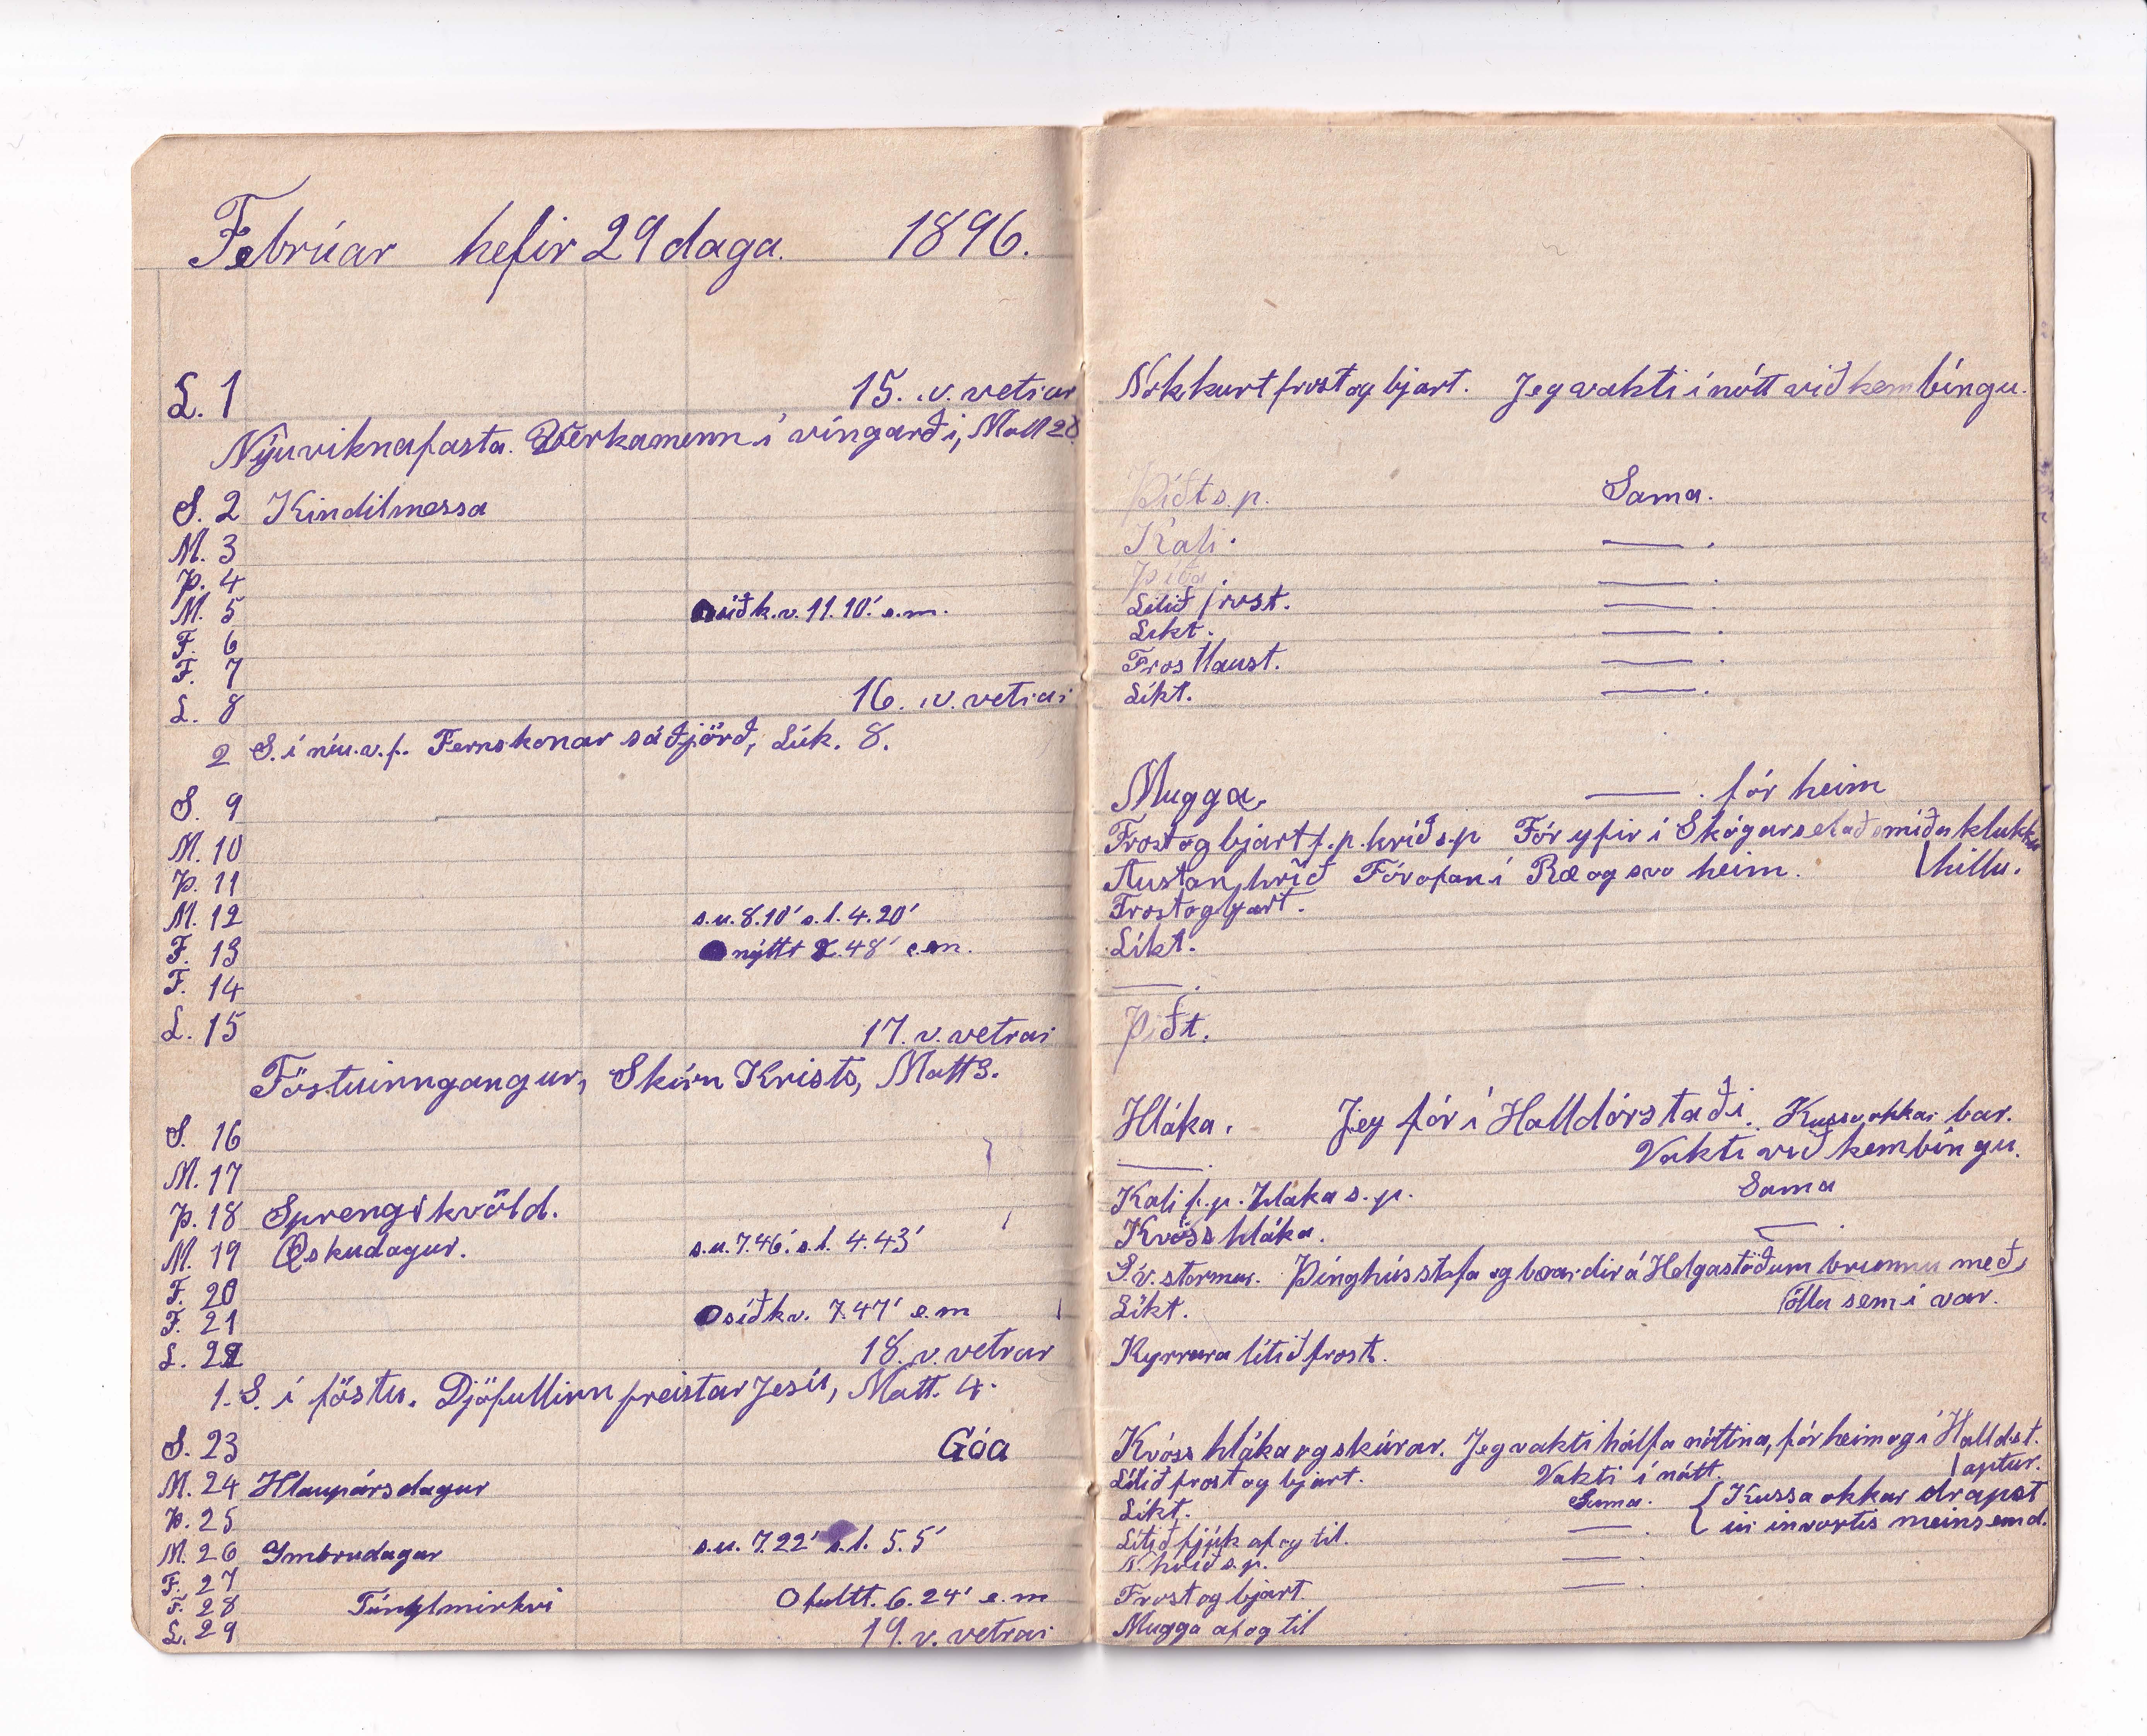 Febrúar hefir 29 daga. 1896.
L. 1 15. v. vetrar
Nýuviknafasta. Verkamenn í víngarði, Matt 20
S. 2 Kindilmessa
M. 3
Þ. 4
M. 5 síð k.v. 11.10' e.m.
F. 6
F. 7
L. 8 16. v. vetrar
2 S. í níu.v.f. Fernskonar sáðjörð, Lúk. 8.
S. 9
M. 10
Þ. 11
M. 12 s.u. 8.10' s.l. 4.20'
F. 13 nýtt 2.48' e.m.
F. 14
L. 15 17. v. vetrar
Föstuinngangur, Skírn Krists, Matt 3.
S. 16
M. 17
Þ. 18 Sprengikvöld.
M. 19 Öskudagur. s.u. 7.46'. s.l. 4.43'
F. 20
F. 21 síðkv. 7.47' e.m
L. 22 18. v. vetrar
1. S. í föstu. Djöfullinn freistar Jesú, Matt. 4.
S. 23 Góa
M. 24 Hlaupársdagur
Þ. 25
M. 26 Imbrudagar s.u. 7.22' s.l. 5.5'
F. 27
F. 28 Túnglmirkvi fullt. 6.24' e.m
L. 29 19. v. vetrar
Nokkurt frost og bjart. Jeg vakti í nótt við kembíngu.
Þíðt s.p. Sama.
Kafi. — .
Þíða. — .
Lítið frost. — .
Líkt. — .
Frostlaust. — .
Líkt. — .
Mugga. — . fór heim
Frost og bjart f.p. hríð s.p Fór yfir í Skógarsel að smíða klukku
Austan hríð Fór ofan í Ræ og svo heim. hillu.
Frost og bjart.
Líkt.
— .
Þíðt.
Hláka. Jeg fór í Halldórstaði. Kussa okkar bar.
— . Vakti við kembíngu.
Kafi f.p. hláka s.p. Sama
Kvöss hláka. — .
S.v. stormur. Þínghússtofa og baardir á Helgastöðum brunnu með
Líkt. öllu sem í var.
Kyrrara lítið frost.
Kvöss hláka og skúrar. Jeg vakti hálfa nóttina, fór heim og í Halldst.
Lítið frost og bjart. Vakti í nótt. aptur.
Líkt. Sama. Kussa okkar drapst
Lítið fjúk af og til. — . úr invortis meinsemd.
N. hríð s.p. — .
Frost og bjart. — .
Mugga af og til